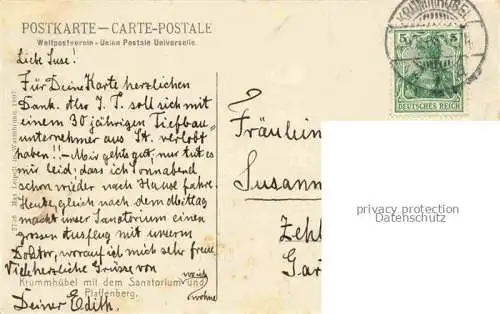 POSTKARTE — CARTE-POSTALE
Weltpostverein - Union Postale Universelle
Liebe Suse!
Für Deine Karte herzlichen
Dank. Also I. T. soll sich mit
einem 30 jährigen Tiefbau-
unternehmer aus St. verlobt
haben!! – Mir gehts gut, nur tut es
mir leid, dass ich Sonnabend
schon wieder nach Hause fahre.
Heute, gleich nach dem Mittag
macht unser Sanatorium einen
grossen Ausflug mit unserm
Doktor, worauf ich mich sehr freue.
Viele herzliche Grüsse von
Deiner Edith.
wo ich
wohne
Krummhübel mit dem Sanatorium und
Pfaffenberg.
KRUMMHÜBEL
5 5
DEUTSCHES REICH
Fräulein
Susann
Zehl
Gar
privacy protection
Datenschutz